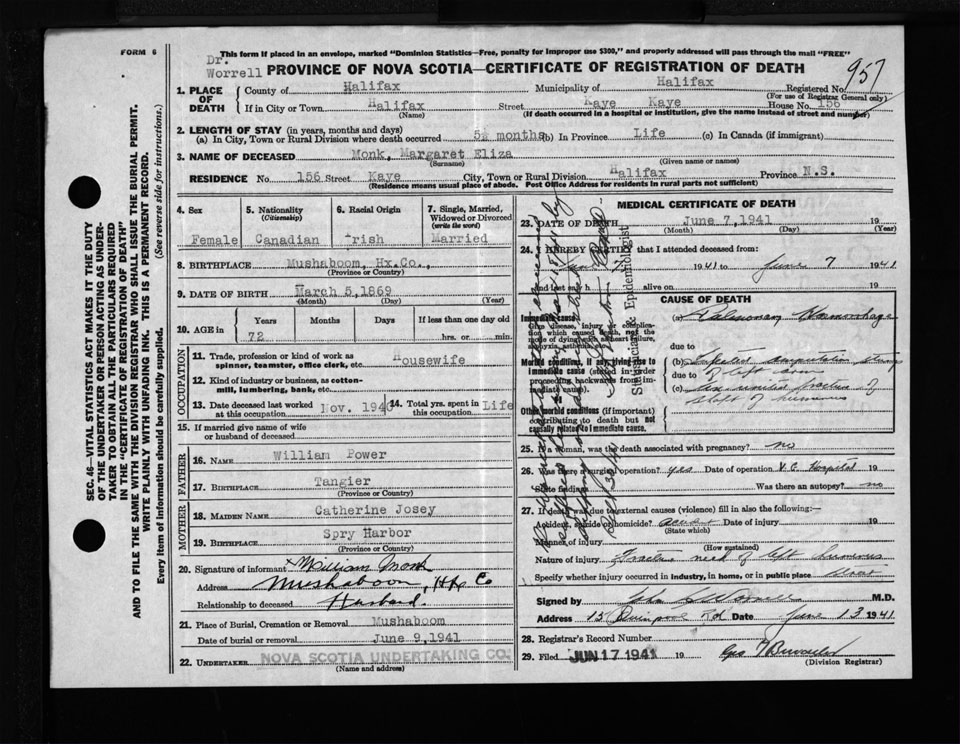 FORM 6
This form if placed in an envelope, marked "Dominion Statistics—Free, penalty for improper use $300," and properly addressed will pass through the mail "FREE"
Dr.
Worrell
PROVINCE OF NOVA SCOTIA—CERTIFICATE OF REGISTRATION OF DEATH
957
1. PLACE OF DEATH
County of Halifax Municipality of Halifax Registered No.
(For use of Registrar General only)
If in City or Town Halifax Street Kaye Kaye House No. 156
(Name) (If death occurred in a hospital or institution, give the name instead of street and number)
2. LENGTH OF STAY (in years, months and days)
(a) In City, Town or Rural Division where death occurred 5½ months (b) In Province Life (c) In Canada (if immigrant)
3. NAME OF DECEASED Monk, Margaret Eliza
(Surname) (Given name or names)
RESIDENCE No. 156 Street Kaye City, Town or Rural Division Halifax Province N.S.
(Residence means usual place of abode. Post Office Address for residents in rural parts not sufficient)
4. Sex 5. Nationality (Citizenship) 6. Racial Origin 7. Single, Married, Widowed or Divorced (write the word)
Female Canadian Irish Married
8. BIRTHPLACE Mushaboom, Hx.Co.,
(Province or Country)
9. DATE OF BIRTH March 5, 1869
(Month) (Day) (Year)
10. AGE in Years Months Days If less than one day old
72 hrs. or min.
OCCUPATION
11. Trade, profession or kind of work as spinner, teamster, office clerk, etc. Housewife
12. Kind of industry or business, as cotton-mill, lumbering, bank, etc.
13. Date deceased last worked at this occupation Nov. 1940 14. Total yrs. spent in this occupation Life
15. If married give name of wife or husband of deceased
FATHER
16. NAME William Power
17. BIRTHPLACE Tangier
(Province or Country)
MOTHER
18. MAIDEN NAME Catherine Josey
19. BIRTHPLACE Spry Harbor
(Province or Country)
20. Signature of informant William Monk
Address Mushaboon, Hx Co
Relationship to deceased Husband.
21. Place of Burial, Cremation or Removal Mushaboom
Date of burial or removal June 9, 1941
22. UNDERTAKER NOVA SCOTIA UNDERTAKING CO.
(Name and address)
MEDICAL CERTIFICATE OF DEATH
23. DATE OF DEATH June 7, 1941 19
(Month) (Day) (Year)
24. I HEREBY CERTIFY that I attended deceased from:
1941 to June 7 1941
and last saw h alive on 19
CAUSE OF DEATH
Immediate cause
Give disease, injury or complication which caused death, not the mode of dying such as heart failure, asphyxia, asthenia, etc.
(a) Pulmonary Haemorrhage
due to
Morbid conditions, if any, giving rise to immediate cause (stated in order proceeding backwards from immediate cause).
(b) Infected amputation stump of left arm
due to
(c) Un united fracture of shaft of humerus
Other morbid conditions (if important) contributing to death but not causally related to immediate cause.
Statistician & Epidemiologist
25. If a woman, was the death associated with pregnancy? no
26. Was there a surgical operation? yes Date of operation V.G. Hospital 19
State findings Was there an autopsy? no
27. If death was due to external causes (violence) fill in also the following:—
Accident, suicide or homicide? Date of injury 19
(State which)
Manner of injury
(How sustained)
Nature of injury Fracture neck of left humerus
Specify whether injury occurred in industry, in home, or in public place
Signed by John Worrell M.D.
Address 15 Quinpool Rd Date June 13 1941
28. Registrar's Record Number
29. Filed JUN 17 1941 19
(Division Registrar)
SEC. 46—VITAL STATISTICS ACT MAKES IT THE DUTY
OF THE UNDERTAKER OR PERSON ACTING AS UNDER-
TAKER TO OBTAIN ALL THE PARTICULARS REQUIRED
IN THE "CERTIFICATE OF REGISTRATION OF DEATH"
AND TO FILE THE SAME WITH THE DIVISION REGISTRAR WHO SHALL ISSUE THE BURIAL PERMIT.
WRITE PLAINLY WITH UNFADING INK. THIS IS A PERMANENT RECORD.
Every item of information should be carefully supplied. (See reverse side for instructions.)